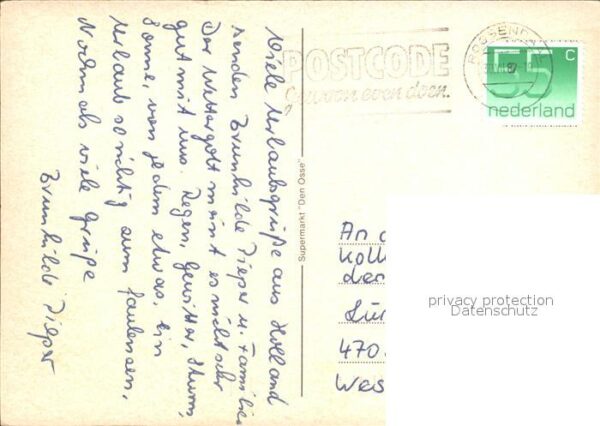 Viele Urlaubsgrüße aus Holland
senden Brunhilde Dieper u. Familie
Der Wettergott meint es nicht sehr
gut mit uns. Regen, Gewitter, Sturm,
Sonne, von jedem etwas, ein
Urlaub so richtig zum faulenzen,
Nochmals viele Grüße
Brunhilde Dieper
Supermarkt "Den Osse"
POSTCODE
Gewoon even doen.
55 C
nederland
An d
Koll
der
470
Wes
privacy protection
Datenschutz